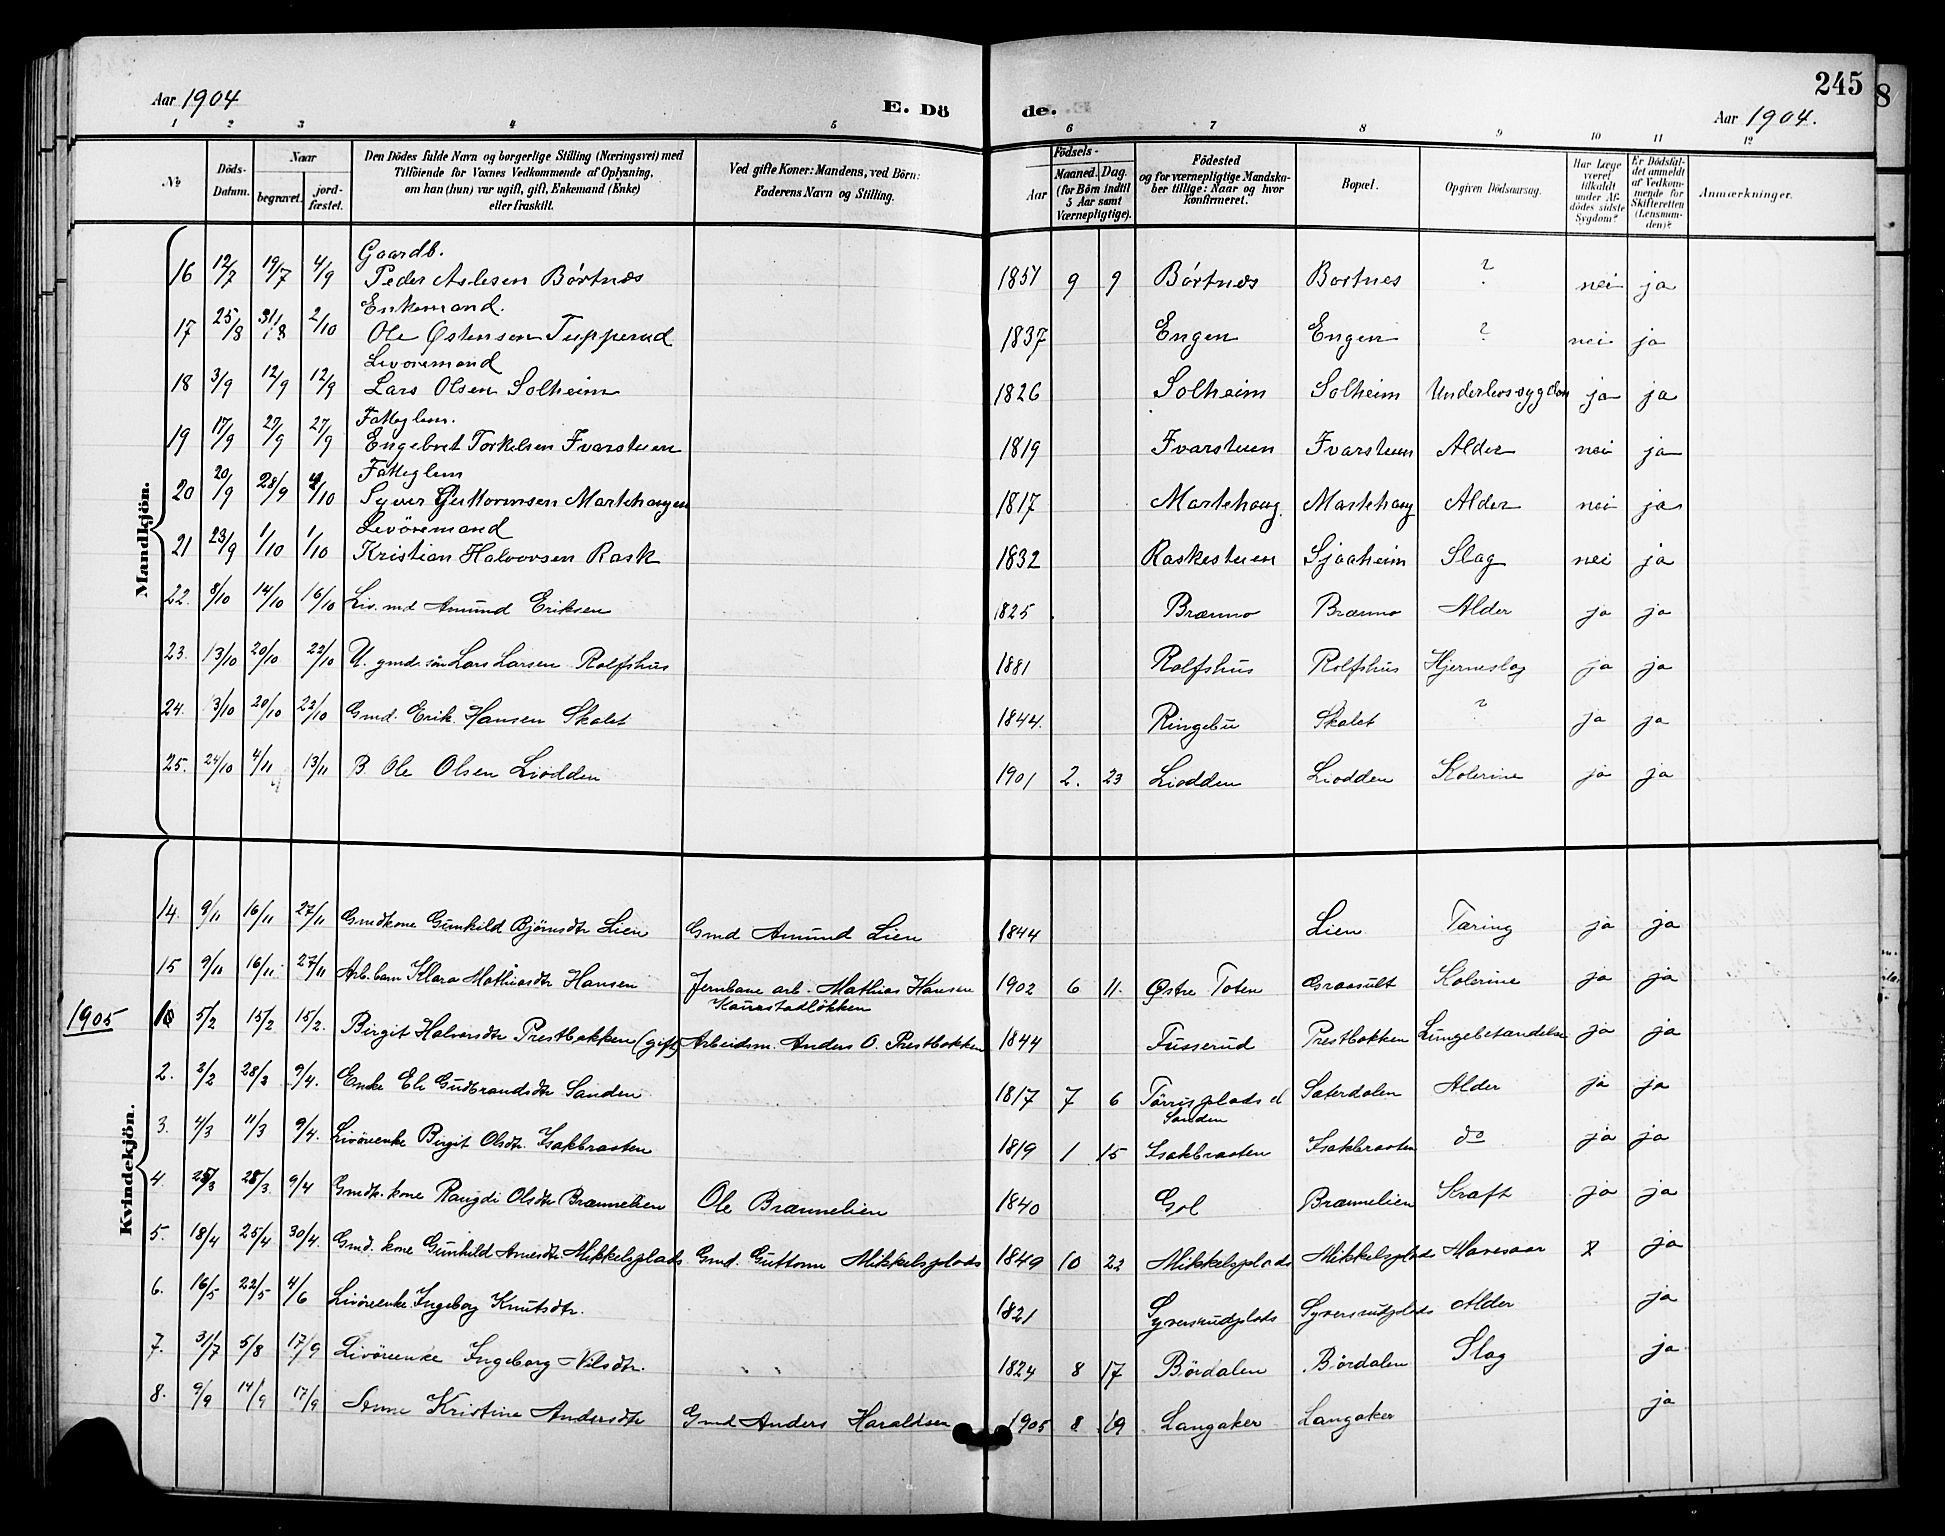 Aar 1904
E. Dö
de.
245
Aar 1904.
1 2 3 4 5 6 7 8 9 10 11 12
No
Döds-Datum.
Naar
begravet.
jord-fæstet.
Den Dödes fulde Navn og borgerlige Stilling (Næringsvei) med
Tilföiende for Voxnes Vedkommende af Oplysning,
om han (hun) var ugift, gift, Enkemand (Enke)
eller fraskilt.
Ved gifte Koner: Mandens, ved Börn:
Faderens Navn og Stilling.
Födsels-
Aar
Maaned.
Dag.
(for Börn indtil
5 Aar samt
Værnepligtige).
Födested
og for værnepligtige Mandska-
ber tillige: Naar og hvor
konfirmeret.
Bopæl.
Opgiven Dödsaarsag.
Har Læge
været
tilkaldt
under Af-
dödes sidste
Sygdom?
Er Dödsfal-
det anmeldt
af Vedkom-
mende for
Skifteretten
(Lensman-
den)?
Anmærkninger.
Mandkjön.
Gaardb.
16 12/7 19/7 4/9 Peder Aslesen Börtnæs 1851 9 9 Börtnes Bortnes ? nei ja
Enkemand.
17 25/8 31/8 2/10 Ole Østensen Tupperud 1837 Engen Engen ? nei ja
Levöremand
18 3/9 12/9 12/9 Lars Olsen Solheim 1826 Solheim Solheim Underlivssygdom ja ja
Fatteglem.
19 17/9 27/9 27/9 Engebret Torkelsen Ivarsteuen 1819 Ivarsteuen Ivarsteuen Alder nei ja
Fatteglem
20 20/9 28/9 /10 Syver Guttormsen Martehaugen 1817 Martehaug. Martehaug Alder nei ja
Levöremand
21 23/9 1/10 1/10 Kristian Halvorsen Rask 1832 Raskestuen Sjaaheim Slag nei ja
22. 8/10 14/10 16/10 Liv. md Amund Eriksen 1825 Brænno Brænno Alder ja ja
23. 13/10 20/10 22/10 U. gmds sön Lars Larsen Rolfshus 1881 Rolfshus Rolfshus Hjerneslag ja ja
24. 13/10 20/10 22/10 Gmd. Erik Hansen Skalet 1844. Ringebu Skalet ? ja ja
25. 24/10 4/11 13/11 B. Ole Olsen Liodden 1901 2. 23 Liodden Liodden Kolerine ja ja
Kvindekjön.
14. 9/11 16/11 27/11 Gmdkone Gunhild Bjørnsdtr Lien Gmd Amund Lien 1844 Lien Tæring ja ja
15 9/11 16/11 27/11 Arb. barn Klara Mathiasdtr Hansen Jernbane arb. Mathias Hansen 1902 6 11. Østre Toten Graasult Kolerine ja ja
Kaurstadløkken
1905 1 5/2 15/2 15/2. Birgit Halvorsdtr Prestbakken (gift) Arbeidsm. Anders O. Prestbakken 1844 Fusserud Prestbakken Lungebetændelse ja ja
2. 2/2 28/2 9/4. Enke Eli Gudbrandsdtr Sanden 1817 7 6 Tørrisplads Sæterdalen Alder ja ja
Sanden
3. 4/3 11/3 9/4. Livöreenke Birgit Olsdtr. Isakbraaten 1819 1 15 Isakbraaten Isakbraaten do ja ja
4. 25/3 28/3. 9/4 Gmdk. kone Rangdi Olsdtr Brænnelien Ole Brænnelien 1840 Gol Brænnelien Kræft ja ja
5. 18/4 25/4 30/4. Gmd. kone Gunhild Arnesdtr. Mikkelsplads Gmd. Guttorm Mikkelsplads 1849 10 22 Mikkelsplads Mikkelsplads Mavesaar ja
6. 16/5 22/5 4/6 Livöreenke Ingeborg Knutsdtr. 1821 Syversrudplads Syversrudplads Alder ja
7. 31/7 5/8 17/9 Livöreenke Ingeborg Nilsdtr. 1824 8 17 Bördalen Bördalen Slag ja
8. 9/9 14/9 17/9 Anne Kristine Andersdtr Gmd Anders Haraldsen 1905 8 19 Langaker Langaker ja